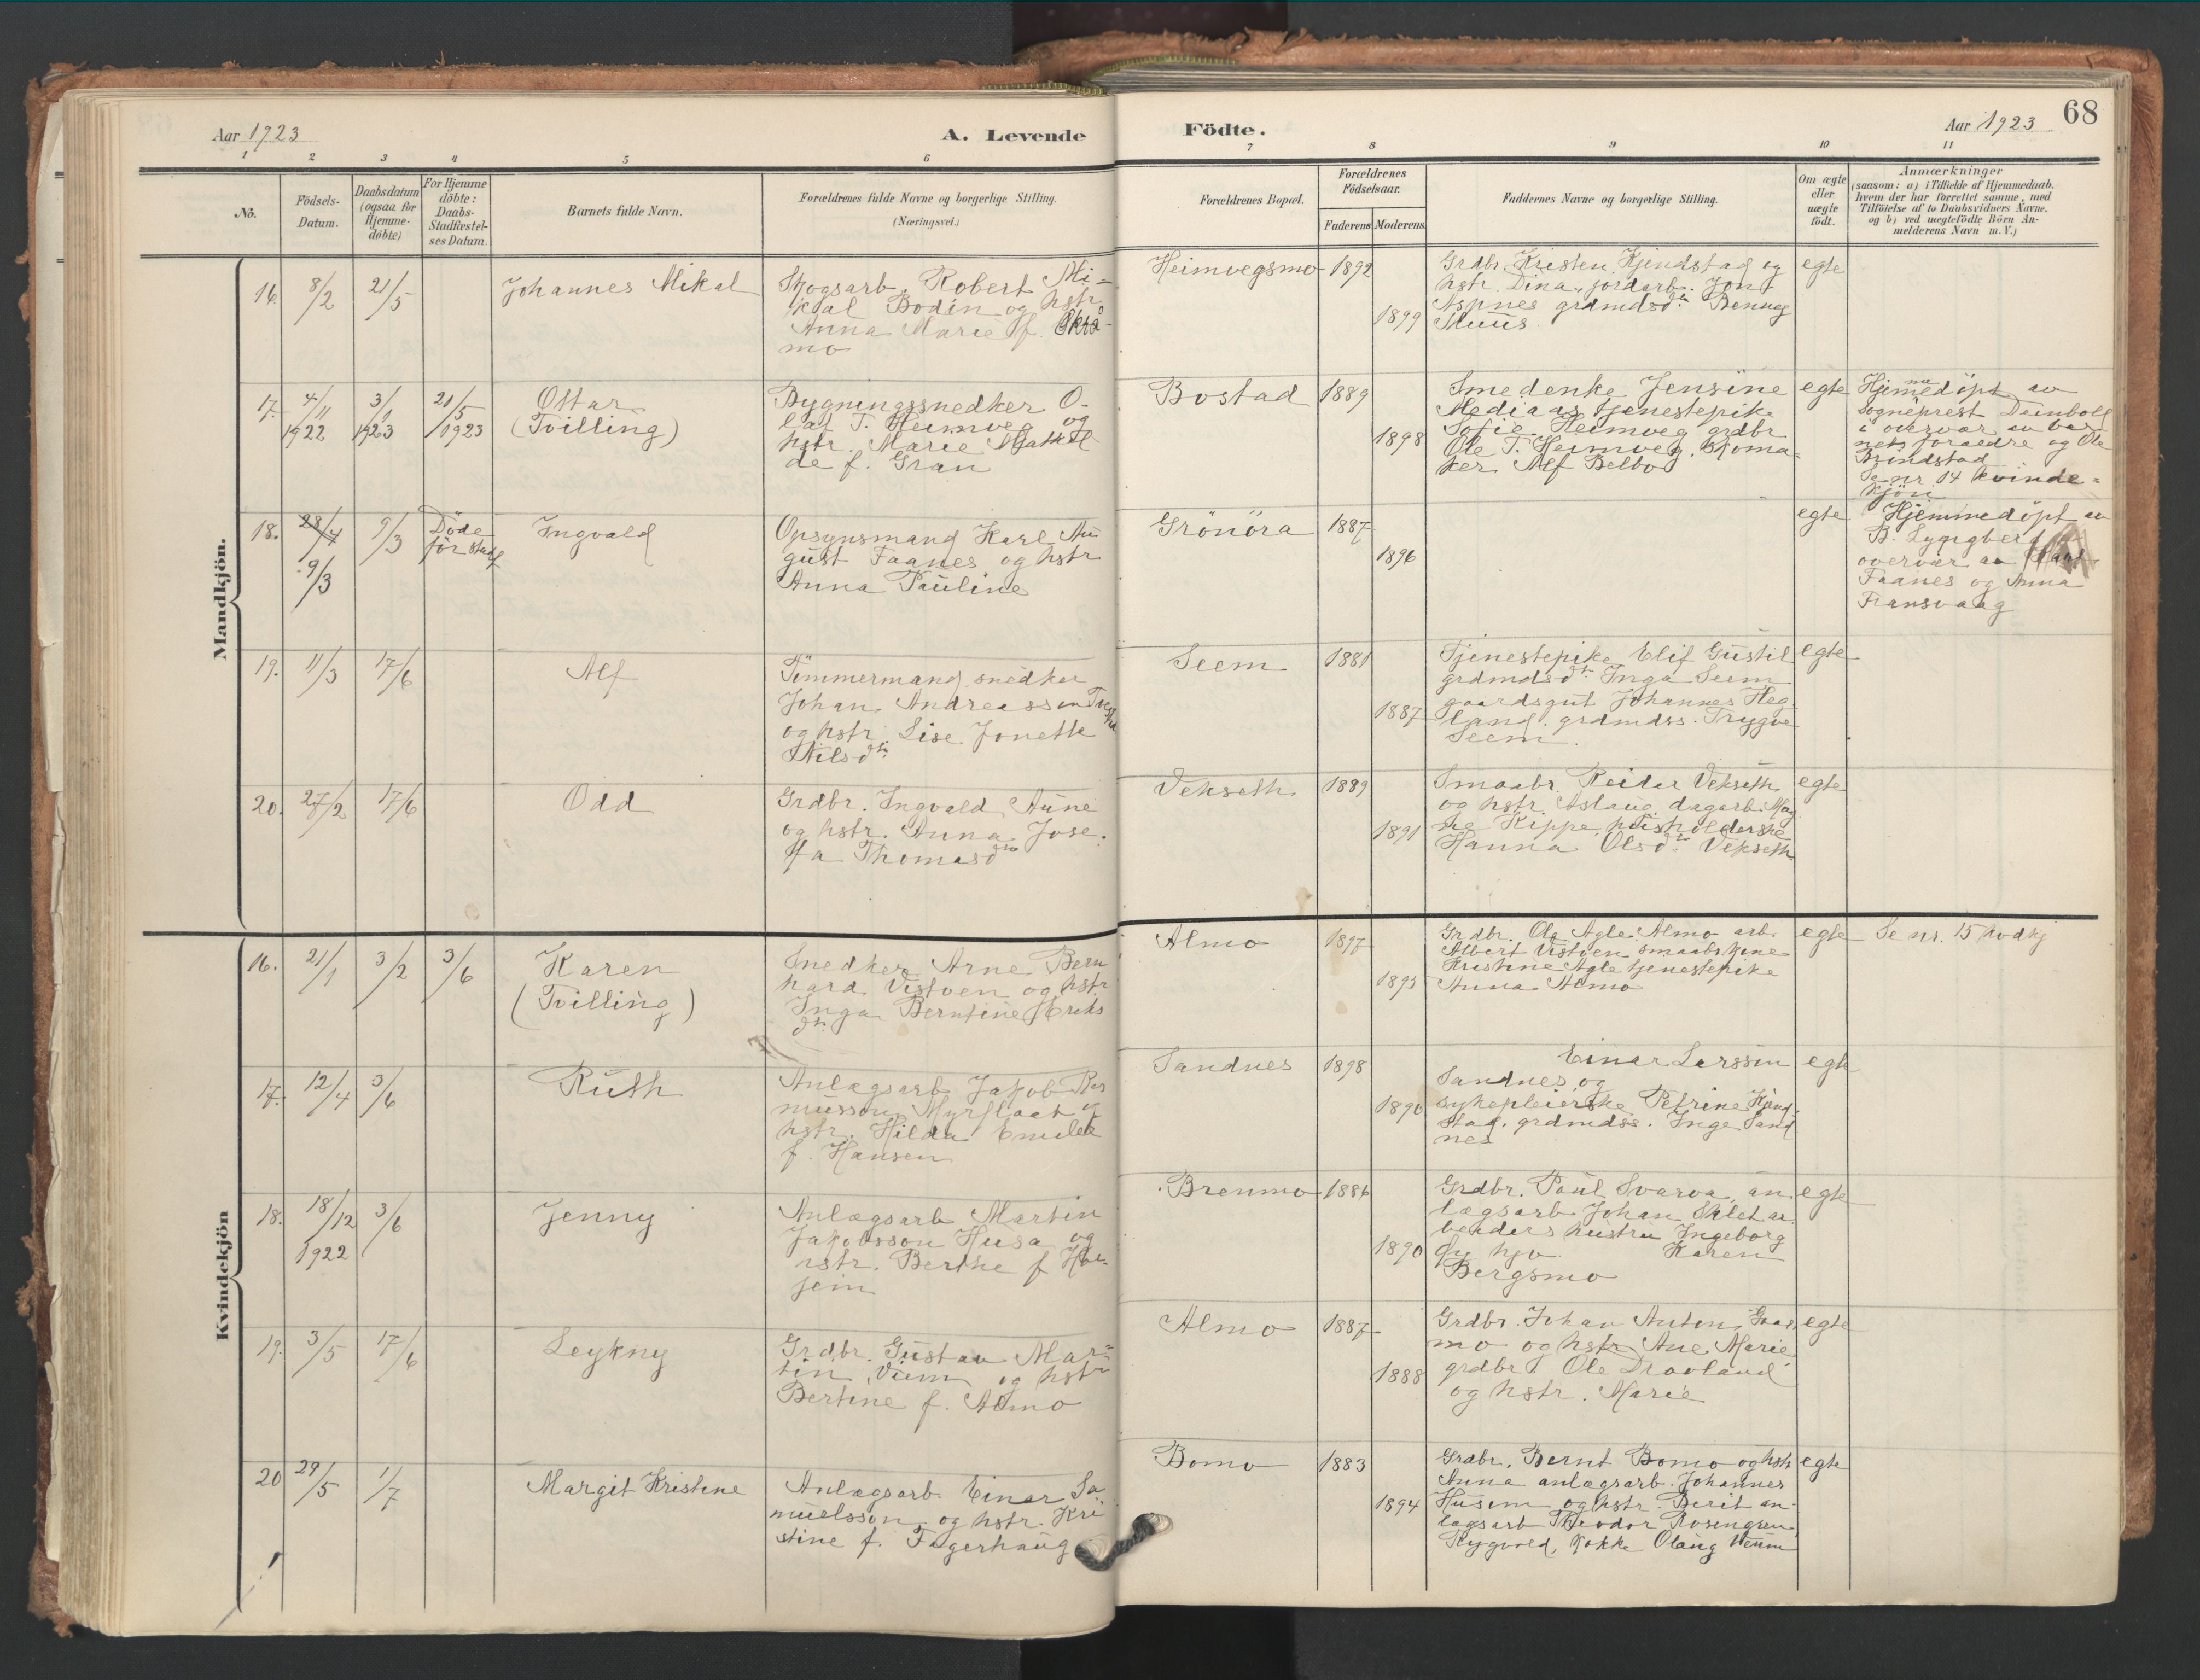 Aar 1923
A. Levende
Födte.
Aar 1923
68
1 2 3 4 5 6 7 8 9 10 11
No.
Födsels-
Datum.
Daabsdatum
(ogsaa for
Hjemme-
döbte)
For Hjemme
döbte:
Daabs-
Stadfæstel-
ses Datum.
Barnets fulde Navn.
Forældrenes fulde Navne og borgerlige Stilling.
(Næringsvei.)
Forældrenes Bopæl.
Forældrenes
Födselsaar.
Faderens
Moderens
Faddernes Navne og borgerlige Stilling.
Om ægte
eller
uægte
födt.
Anmærkninger
(saasom: a) i Tilfælde af Hjemmedaab.
hvem der har forrettet samme, med
Tilföielse af to Daabsvidners Navne.
og b) ved uægtefödte Börn An-
melderens Navn m.V.)
Mandkjön.
16. 8/2 21/5
Johannes Mikal
Skogsarb. Robert Mi-
kal Bodin og hstr
Anna Marie f. Ekra-
mo
Heimvegsmo 1892
1899
Grdbr. Kristen Kjendstad og
hstr. Dina, jordarb. Jon
Aspnes grdmdsdtr Bennug
Muus
egte
17. 4/11 1922 3/1 1923 21/5 1923
Ottar
(Tvilling)
Bygningssnedker O-
laf T. Heimveg og
hstr. Marie Mathil
de f. Gran
Bostad 1889
1898
Smedenke Jensine
Mediaas tjenestepike
Sofie Heimveg grdbr
Ole T. Heimveg. Skoma-
ker Alf Belbo
egte
Hjemmedöpt av
sogneprest Deinboll
i overvær av bar
nets foraedre og Ole
Brindstad
Se nr. 14 kvinde-
kjön
18. 28/4 9/3 9/3
Döde
för stadf
Ingvald
Opsynsmand Karl Au
gust Faanes og hstr
Anna Pauline
Grönöra 1887
1896
egte
Hjemmedöpt av
B. Lyngberg
overvær av
Faanes og Anna
Fransvaag
19. 11/3 17/6
Alf
Tömmermand snedker
Johan Andreassen
og hstr. Lise Jonette
Nilsdtr
Seem 1881
1887
Tjenestepike Elif Gustil
grdmdsdtr Inga Seem
gaardsgut Johannes Heg
land. grdmdss. Trygve
Seem.
egte
20. 27/2 17/6
Odd
Grdbr. Ingvald Aune
og hstr. Anna Jose-
fa Thomasdtr
Vekseth 1889
1891
Smaabr. Reidar Vekseth
og hstr. Aslaug dagarb. Mag
ne Kippe husholderske
Hanna Olsdtr Vekseth
egte
Kvindekjön
16. 21/1 3/2 3/6
Karen
(Tvilling)
Snedker Arne Bern
hard Vistven og hstr
Inga Berntine Eriks
dtr
Almo 1897
1895
Grdbr. Ole Agle Almo arb.
Albert Vistven smaabrkone
Kristine Agle tjenestepike
Anna Almo
egte
Se nr. 15 hodkj
17. 12/4 3/6
Ruth
Anlægsarb Jakob Ras
musson Myrflaat og
hstr. Hilda Emilie
f. Hansen
Sandnes 1898
1890
Einar Larssen
Sandnes og
sykepleierske Petrine Kjend-
stad. grdmdss. Inge Sand
nes
egte
18. 18/12 1922 3/6
Jenny
Anlægsarb Martin
Jakobsson Husa og
hstr. Berthe f. Hae-
sein
Brenmo 1886
1890
Grdbr. Paul Svarva, an-
lægsarb Johan Sklet ar-
beiders hustru Ingeborg
Karen
Bergsmo
egte
19. 3/5 17/6
Leykny
Grdbr. Gustav Mar-
tin Vium og hstr
Bertine f. Almo
Almo 1887
1888
Grdbr. Johan Anton Graa
mo og hstr Ane Marie
grdbr Ole Dravland
og hstr. Marie
egte
20 29/5 1/7
Margit Kristine
Anlægsarb Einar Sa
muelsson og hstr. Kri
stine f. Fagerhaug
Bomo 1883
1894
Grdbr. Bernt Bomo og hstr
Anna anlægsarb. Johannes
Husem og hstr. Berit an-
lægsarb Theodor Rosengren
Rygvold, kokke Olaug Weium
egte